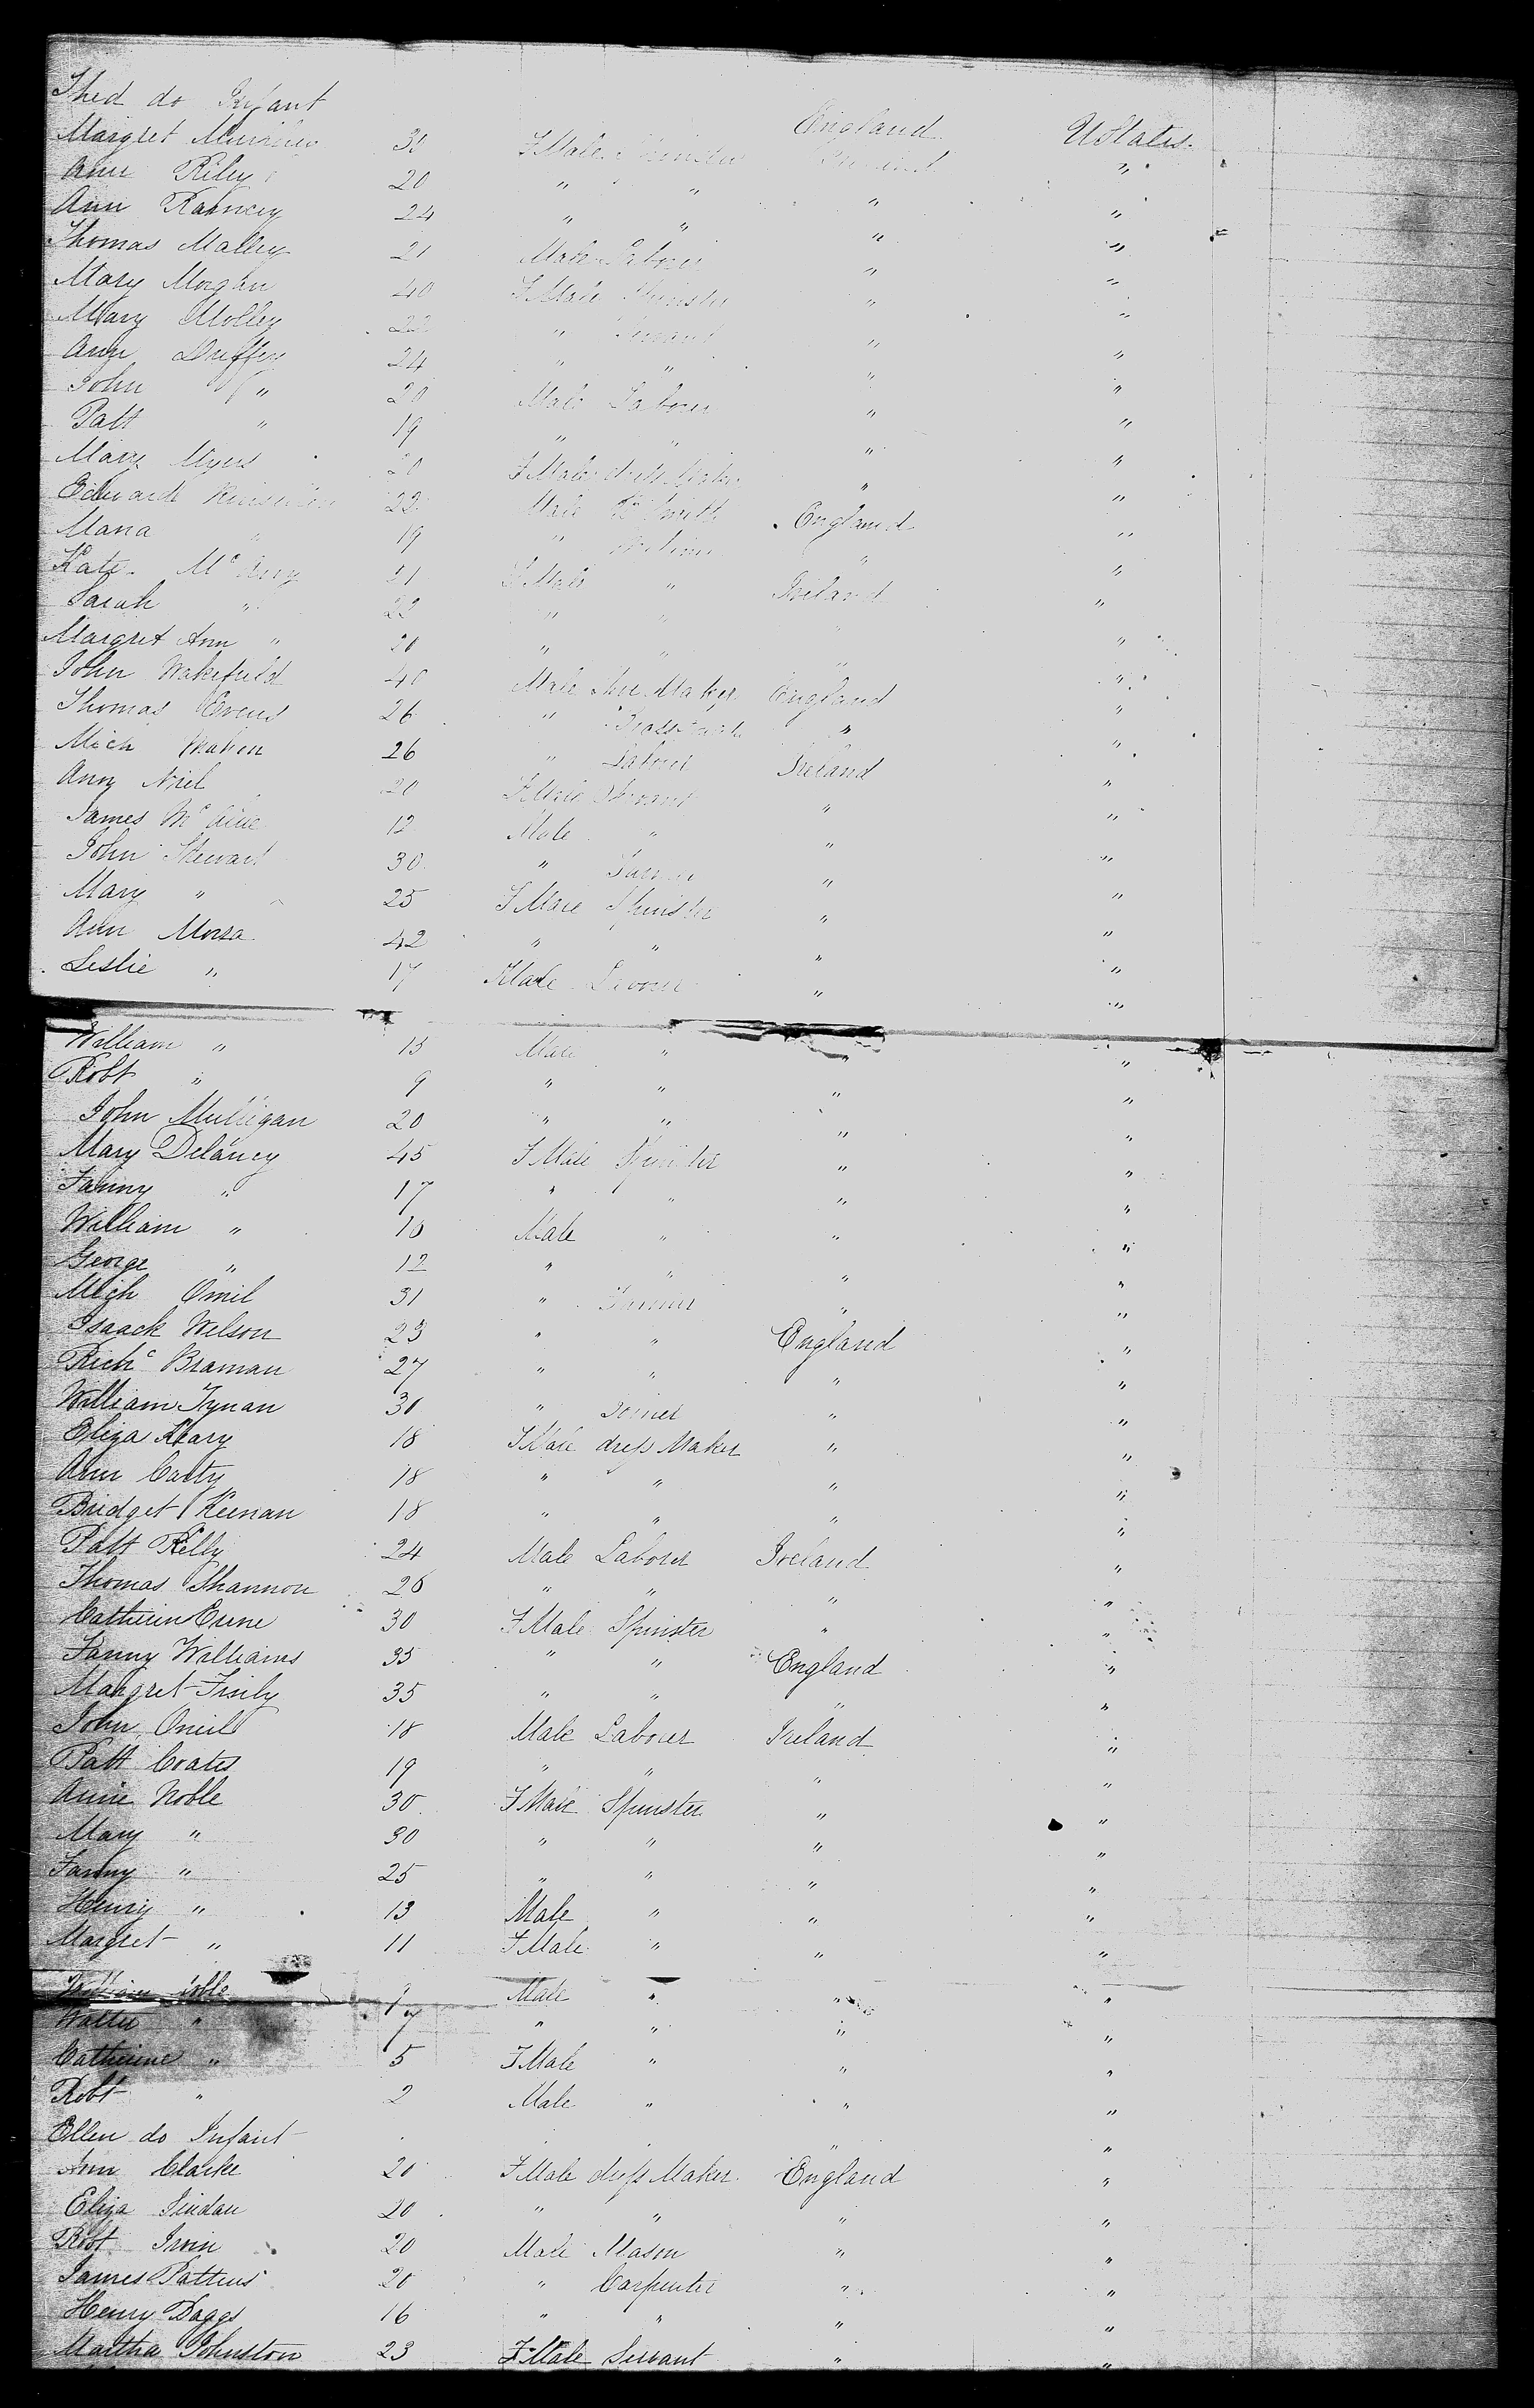 Fred do Infant England UStates.
Margret 30 FMale Spinster Ireland "
Ann Riley 20 " " " "
Ann Rabncey 24 " " " "
Thomas Malley 21 Male Laborer " "
Mary Morgan 40 FMale Spinster " "
Mary Molley 22 " Servant " "
Ann Duffey 24 " " " "
John " 20 Male Laborer " "
Patt " 19 " " " "
Mary Myers 20 FMale dress Maker " "
Edward 22 Male Smith England "
Maria " 19 " " "
Kate Mc 21 FMale " Ireland "
Sarah " 22 " " "
Margret Ann " 20 " " " "
John Wakefield 40 Male Shoe Maker England "
Thomas Evens 26 " " "
Mich Mahon 26 " Laborer Ireland "
Ann Niel 20 FMale Servant " "
James Mc 12 Male " " "
John Stewart 30 " Farmer " "
Mary " 25 FMale Spinster " "
Ann Morsa 42 " " " "
Leslie " 17 Male Laborer " "
William " 13 Male " " "
Robt " 9 " " " "
John Mulligan 20 " " " "
Mary Delaney 45 FMale Spinster " "
Fanny " 17 " " " "
William " 10 Male " " "
George " 12 " " " "
Migh Oneil 31 " Farmer " "
Isaack Wilson 23 " " England "
Richc Braman 27 " " " "
William Tynan 30 " Joiner " "
Eliza Leary 18 FMale dress Maker " "
Ann Carty 18 " " " "
Bridget Keenan 18 " " " "
Patt Kelly 24 Male Laborer Ireland "
Thomas Shannon 26 " " " "
Catherin Crene 30 FMale Spinster " "
Fanny Williams 35 " " England "
Margret Finly 35 " " " "
John Oneil 18 Male Laborer Ireland "
Patt Coates 19 " " " "
Anne Noble 30 FMale Spinster " "
Mary " 30 " " " "
Fanny " 25 " " " "
Henry " 13 Male " " "
Margret " 11 FMale " " "
William Noble 9 Male " " "
Walter " 7 " " " "
Catherine " 5 FMale " " "
Robt " 2 Male " " "
Ellen do Infant " "
Ann Clarke 20 FMale dress Maker England "
Eliza Lindan 20 " " " "
Robt Irvin 20 Male Mason " "
James Pattens 20 " Carpenter " "
Henry Daggs 16 " " " "
Martha Johnston 23 FMale Servant " "